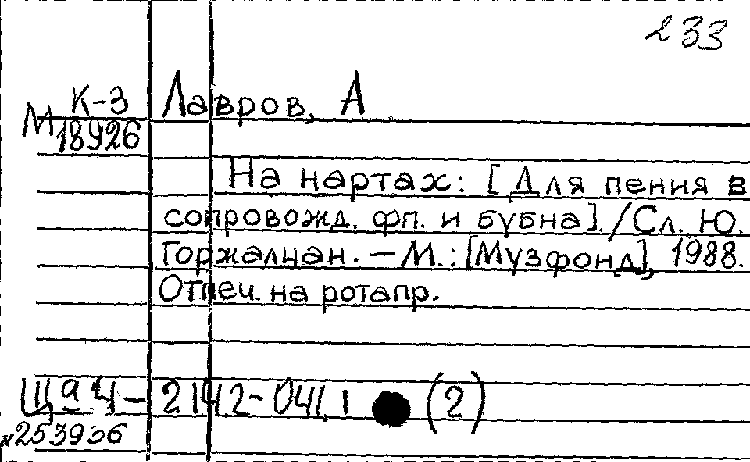 233
К-3 Лавров, А
М 18926
На нартах: [Для пения в
сопровожд. фп. и бубна] / Сл. Ю.
Горжалцан. — М.: [Музфонд], 1988.
Отпеч. на ротапр.
Щ94-2142-041,1 (2)
N253936